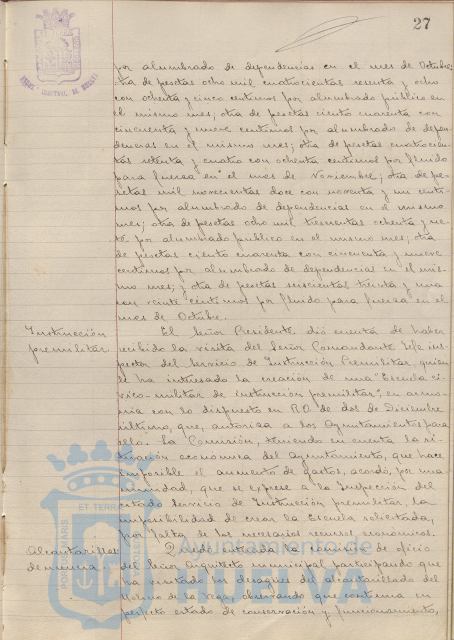 27
por alumbrado de dependencias en el mes de Octubre;
otra de pesetas ocho mil cuatrocientas sesenta y ocho
con ochenta y cinco centimos por alumbrado público en
el mismo mes; otra de pesetas ciento cuarenta con
cincuenta y nueve centimos por alumbrado de depen-
dencias en el mismo mes; otra de pesetas cuatrocien-
tas setenta y cuatro con ochenta centimos por fluido
para fuerza en el mes de Noviembre; otra de pe-
setas mil novecientas doce con noventa y un centi-
mos por alumbrado de dependencias en el mismo
mes; otra de pesetas ocho mil trescientas ochenta y sie-
te por alumbrado publico en el mismo mes; otra
de pesetas ciento cuarenta con cincuenta y nueve
centimos por alumbrado de dependencias en el mis-
mo mes; y otra de pesetas seiscientas treinta y una
con veinte centimos por fluido para fuerza en el
mes de Octubre.
Instrucción
premilitar.
El Señor Presidente dió cuenta de haber
recibido la visita del Señor Comandante Jefe ins-
pector del Servicio de Instrucción Premilitar, quien
le ha interesado la creación de una "Escuela ci-
vico-militar de instrucción premilitar", en armo-
nia con lo dispuesto en R.O. de dos de Diciembre
último, que, autoriza a los Ayuntamientos para
ello. La Comisión, teniendo en cuenta la si-
tuación economica del Ayuntamiento, que hace
imposible el aumento de gastos, acordó, por una-
nimidad, que se exprese a la Inspección del
citado Servicio de Instrucción premilitar, la
imposibilidad de crear la Escuela solicitada,
por falta de los necesarios recursos economicos.
Alcantarillas
denuncia.
Quedó enterada la Comisión de oficio
del Señor Arquitecto municipal participando que
ha visitado los desagües del alcantarillado del
Molino de la Vega, observando que continua en
perfecto estado de conservación y funcionamiento,
PORTUS MARIS ET TERRÆ
Ayuntamiento de
HUELVA